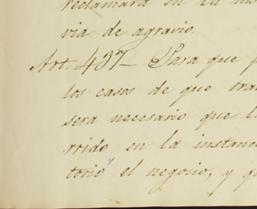 reclamará en la
via de agravio.
Art. 437_ Para que
los casos de que tra
será necesario que l
rrido en la instan
torió el negocio, y q